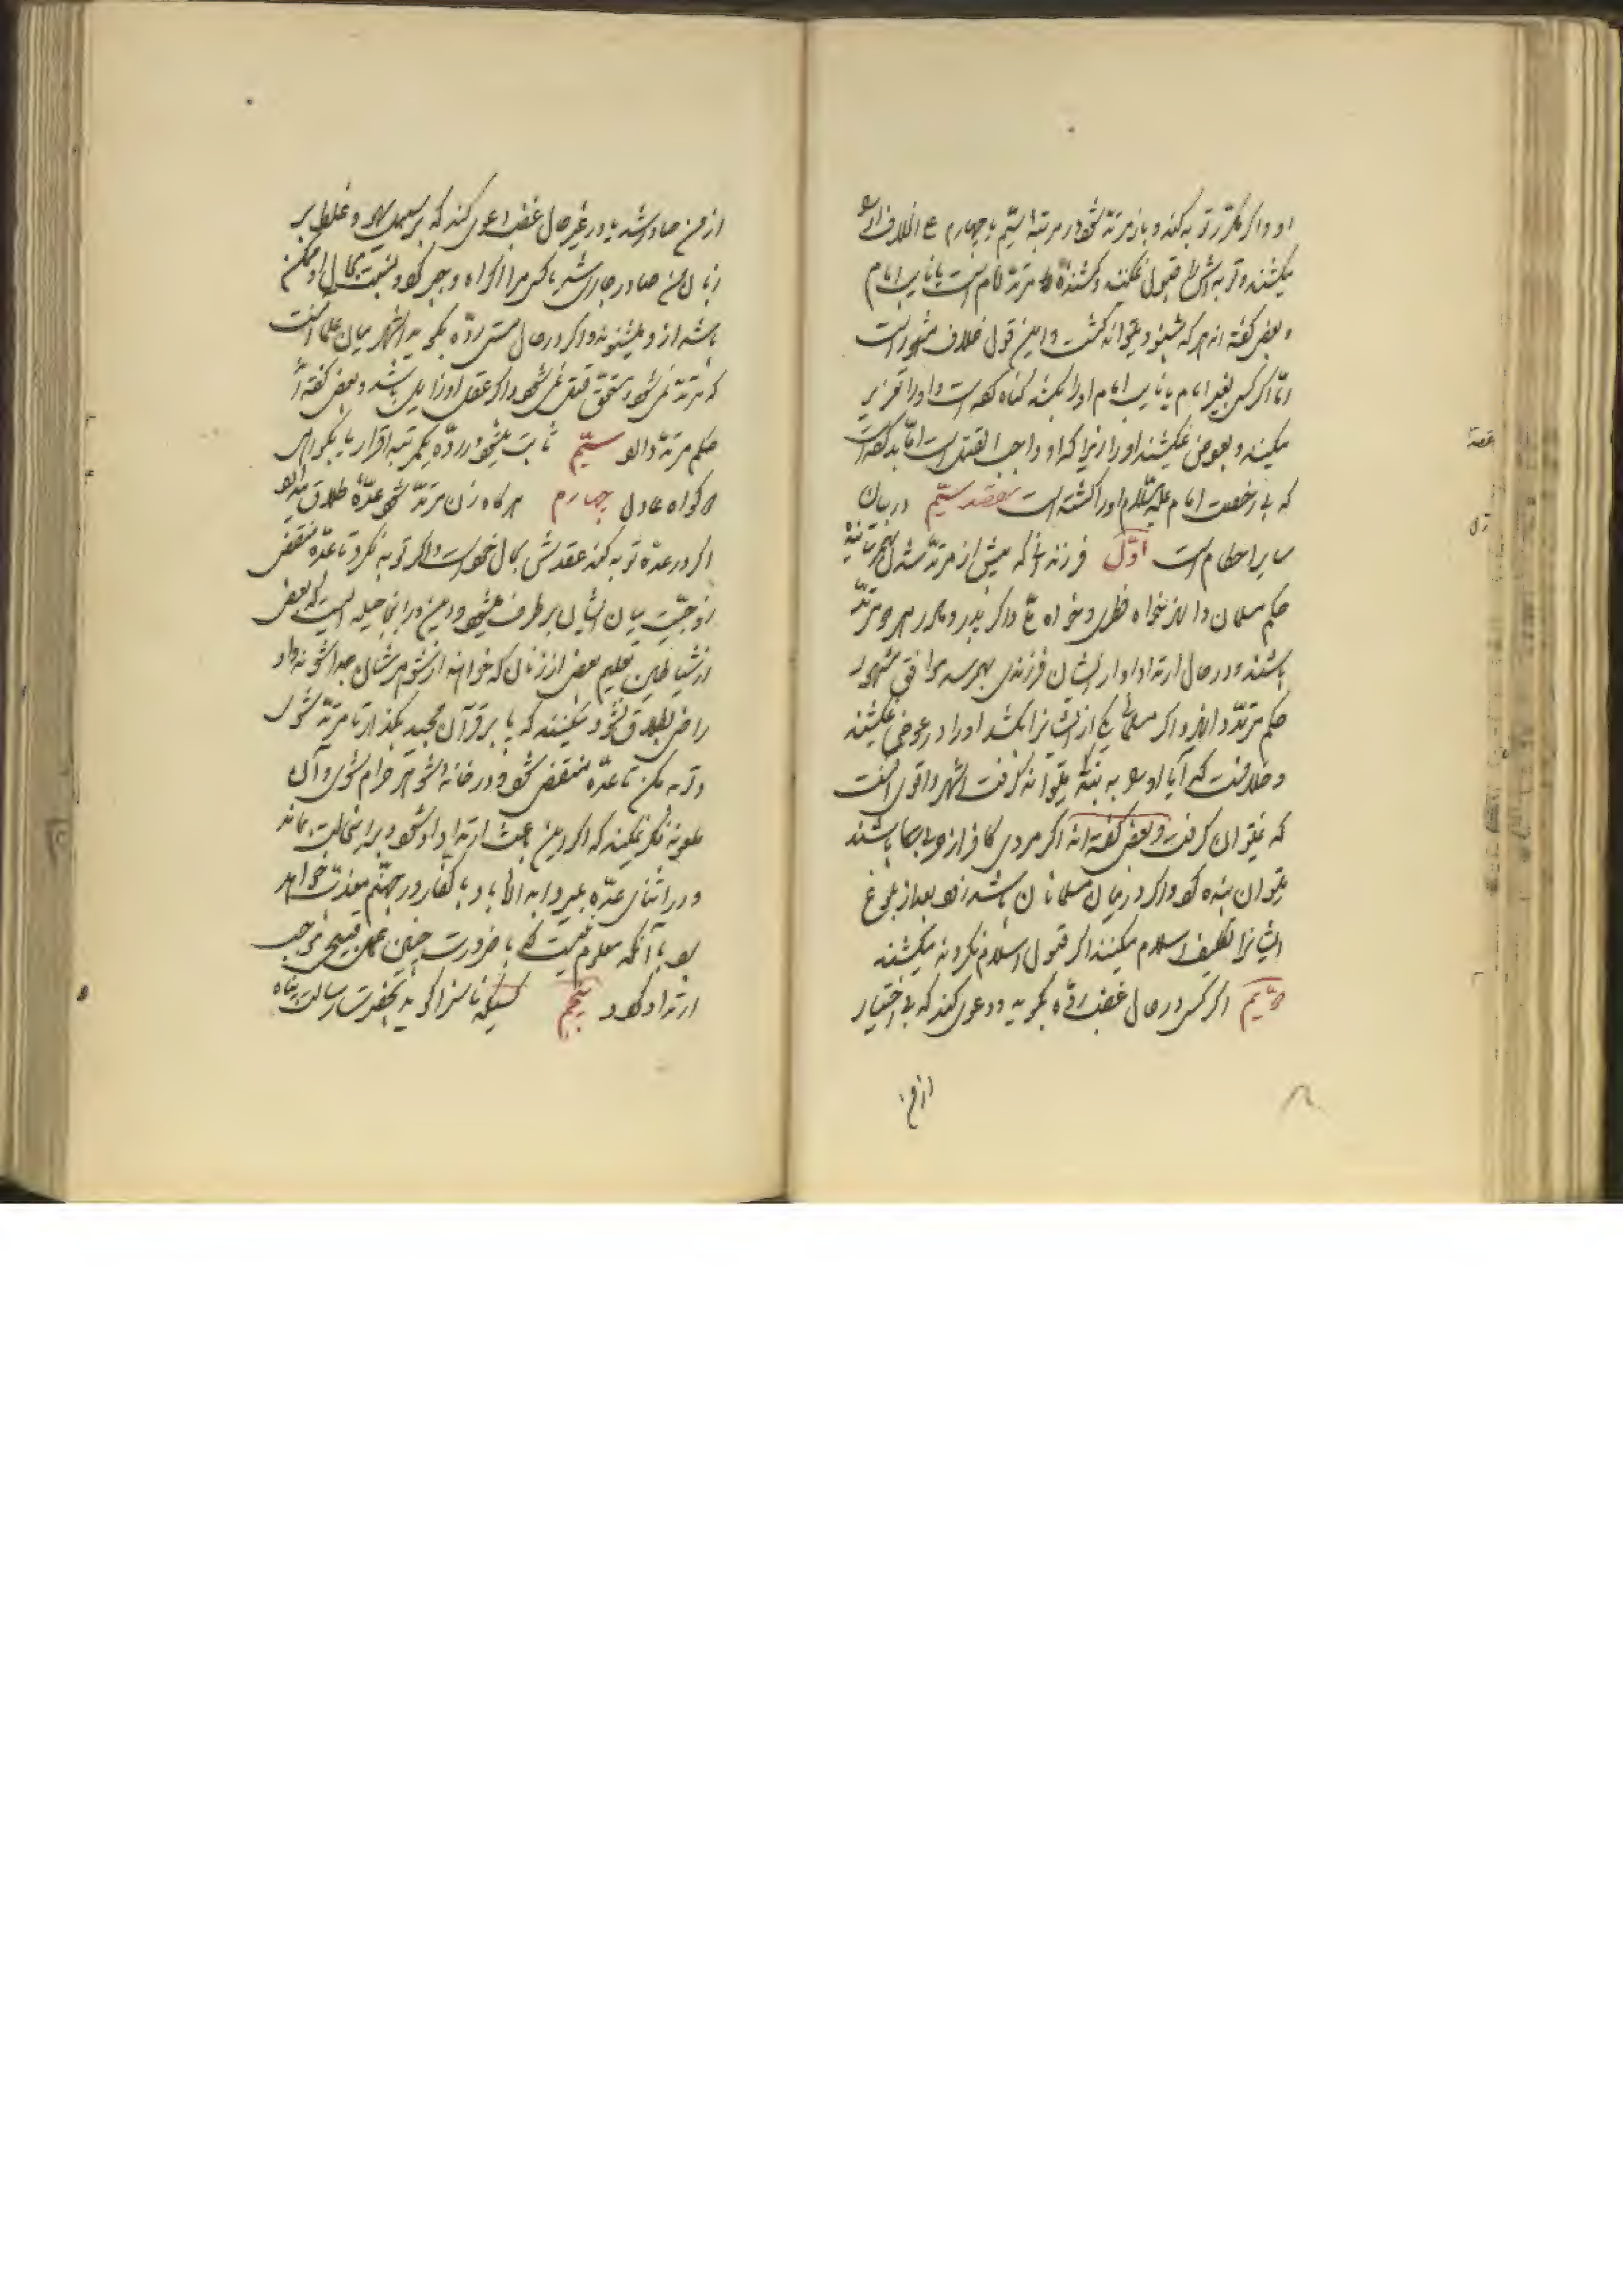 او و اگر مکرّر توبه کند و باز مرتدّ شود در مرتبهٔ سیّم یا چهارم علی
میکشند و توبه‌اش را قبول نمیکنند و کشندهٔ مرتدّ امام است یا نایب امام
و بعضی گفته‌اند هر که شنود میتواند کشت و این قول خلاف مشهور است
امّا اگر کسی بغیر امام یا نایب امام او را بکشد گناه کرده است و او را تعزیر
میکنند و بعوض نمیکشند او را زیرا که او واجب القتل است امّا بد کرده است
که بی رخصت امام علیه السّلام او را کشته است مقصد سیّم در بیان
سایر احکام است اوّل فرزندانی که پیش از مرتدّ شدن بهم
حکم مسلمان دارند خواه فطری و خواه ملّی و اگر پدر و مادر هر دو مرتدّ
باشند و در حال ارتداد از ایشان فرزندی بهم رسد موافق مشهور
حکم مرتدّ دارند و اگر مسلمانی یکی از ایشانرا بکشد او را در عوض نمیکشند
و خلافست که آیا او را به بندگی میتوان گرفت اشهر و اقوی آنست
که نمیتوان گرفت و بعضی گفته‌اند اگر مردی کافر از باشند
میتوان بنده کرد و اگر در میان مسلمانان باشند بعد از بلوغ
ایشانرا تکلیف اسلام میکنند اگر قبول اسلام نکردند میکشند
دویّم اگر کسی در حال غضب ردّه بگوید و دعوی کند که بی اختیار
از من
از من صادر شد یا در غیر حال غضب دعوی کند که بر سبیل سهو و غلط بر
زبان من صادر جاری شد یا کسی مرا اکراه و جبر کرد و نسبت بحال او ممکن
باشد از او میشنوند و اگر در حال مستی ردّه بگوید اشهر میان علما آنست
که مرتدّ نمیشود و مستحقّ قتل نمیشود اگر عقل او زایل باشد و بعضی گفته‌اند
حکم مرتدّ دارد سیّم ثابت میشود ردّه بیکمرتبه اقرار یا بگواهی
دو گواه عادل چهارم هر گاه زن مرتدّ شود عدّهٔ طلاق میدارد
اگر در عدّه توبه کند عقدش بحال خود است و اگر توبه نکرد تا عدّه منقضی
زوجیّت میان ایشان بر طرف میشود و این در اینجا حیله ایست که بعضی
از شیاطین تعلیم بعضی از زنان که خواهند از شوهرشان جدا شوند و او
راضی بطلاق نشود میکنند که پا بر قرآن مجید بگذار تا مرتدّ شوی
و توبه مکن تا عدّه منقضی شود و در خانهٔ شوهر حرام شوی و آن
ملعونه فکر نمیکند که اگر این باعث ارتداد او شود و بر این حالت بماند
و در اثنای عدّه بمیرد ابد الآباد با کفّار در جهنّم معذّب خواهد
بود با آنکه معلوم نیست که با ضرورت چنین عمل قبیحی موجب
ارتداد گردد پنجم کسیکه ناسزا گوید بحضرت رسالت پناه